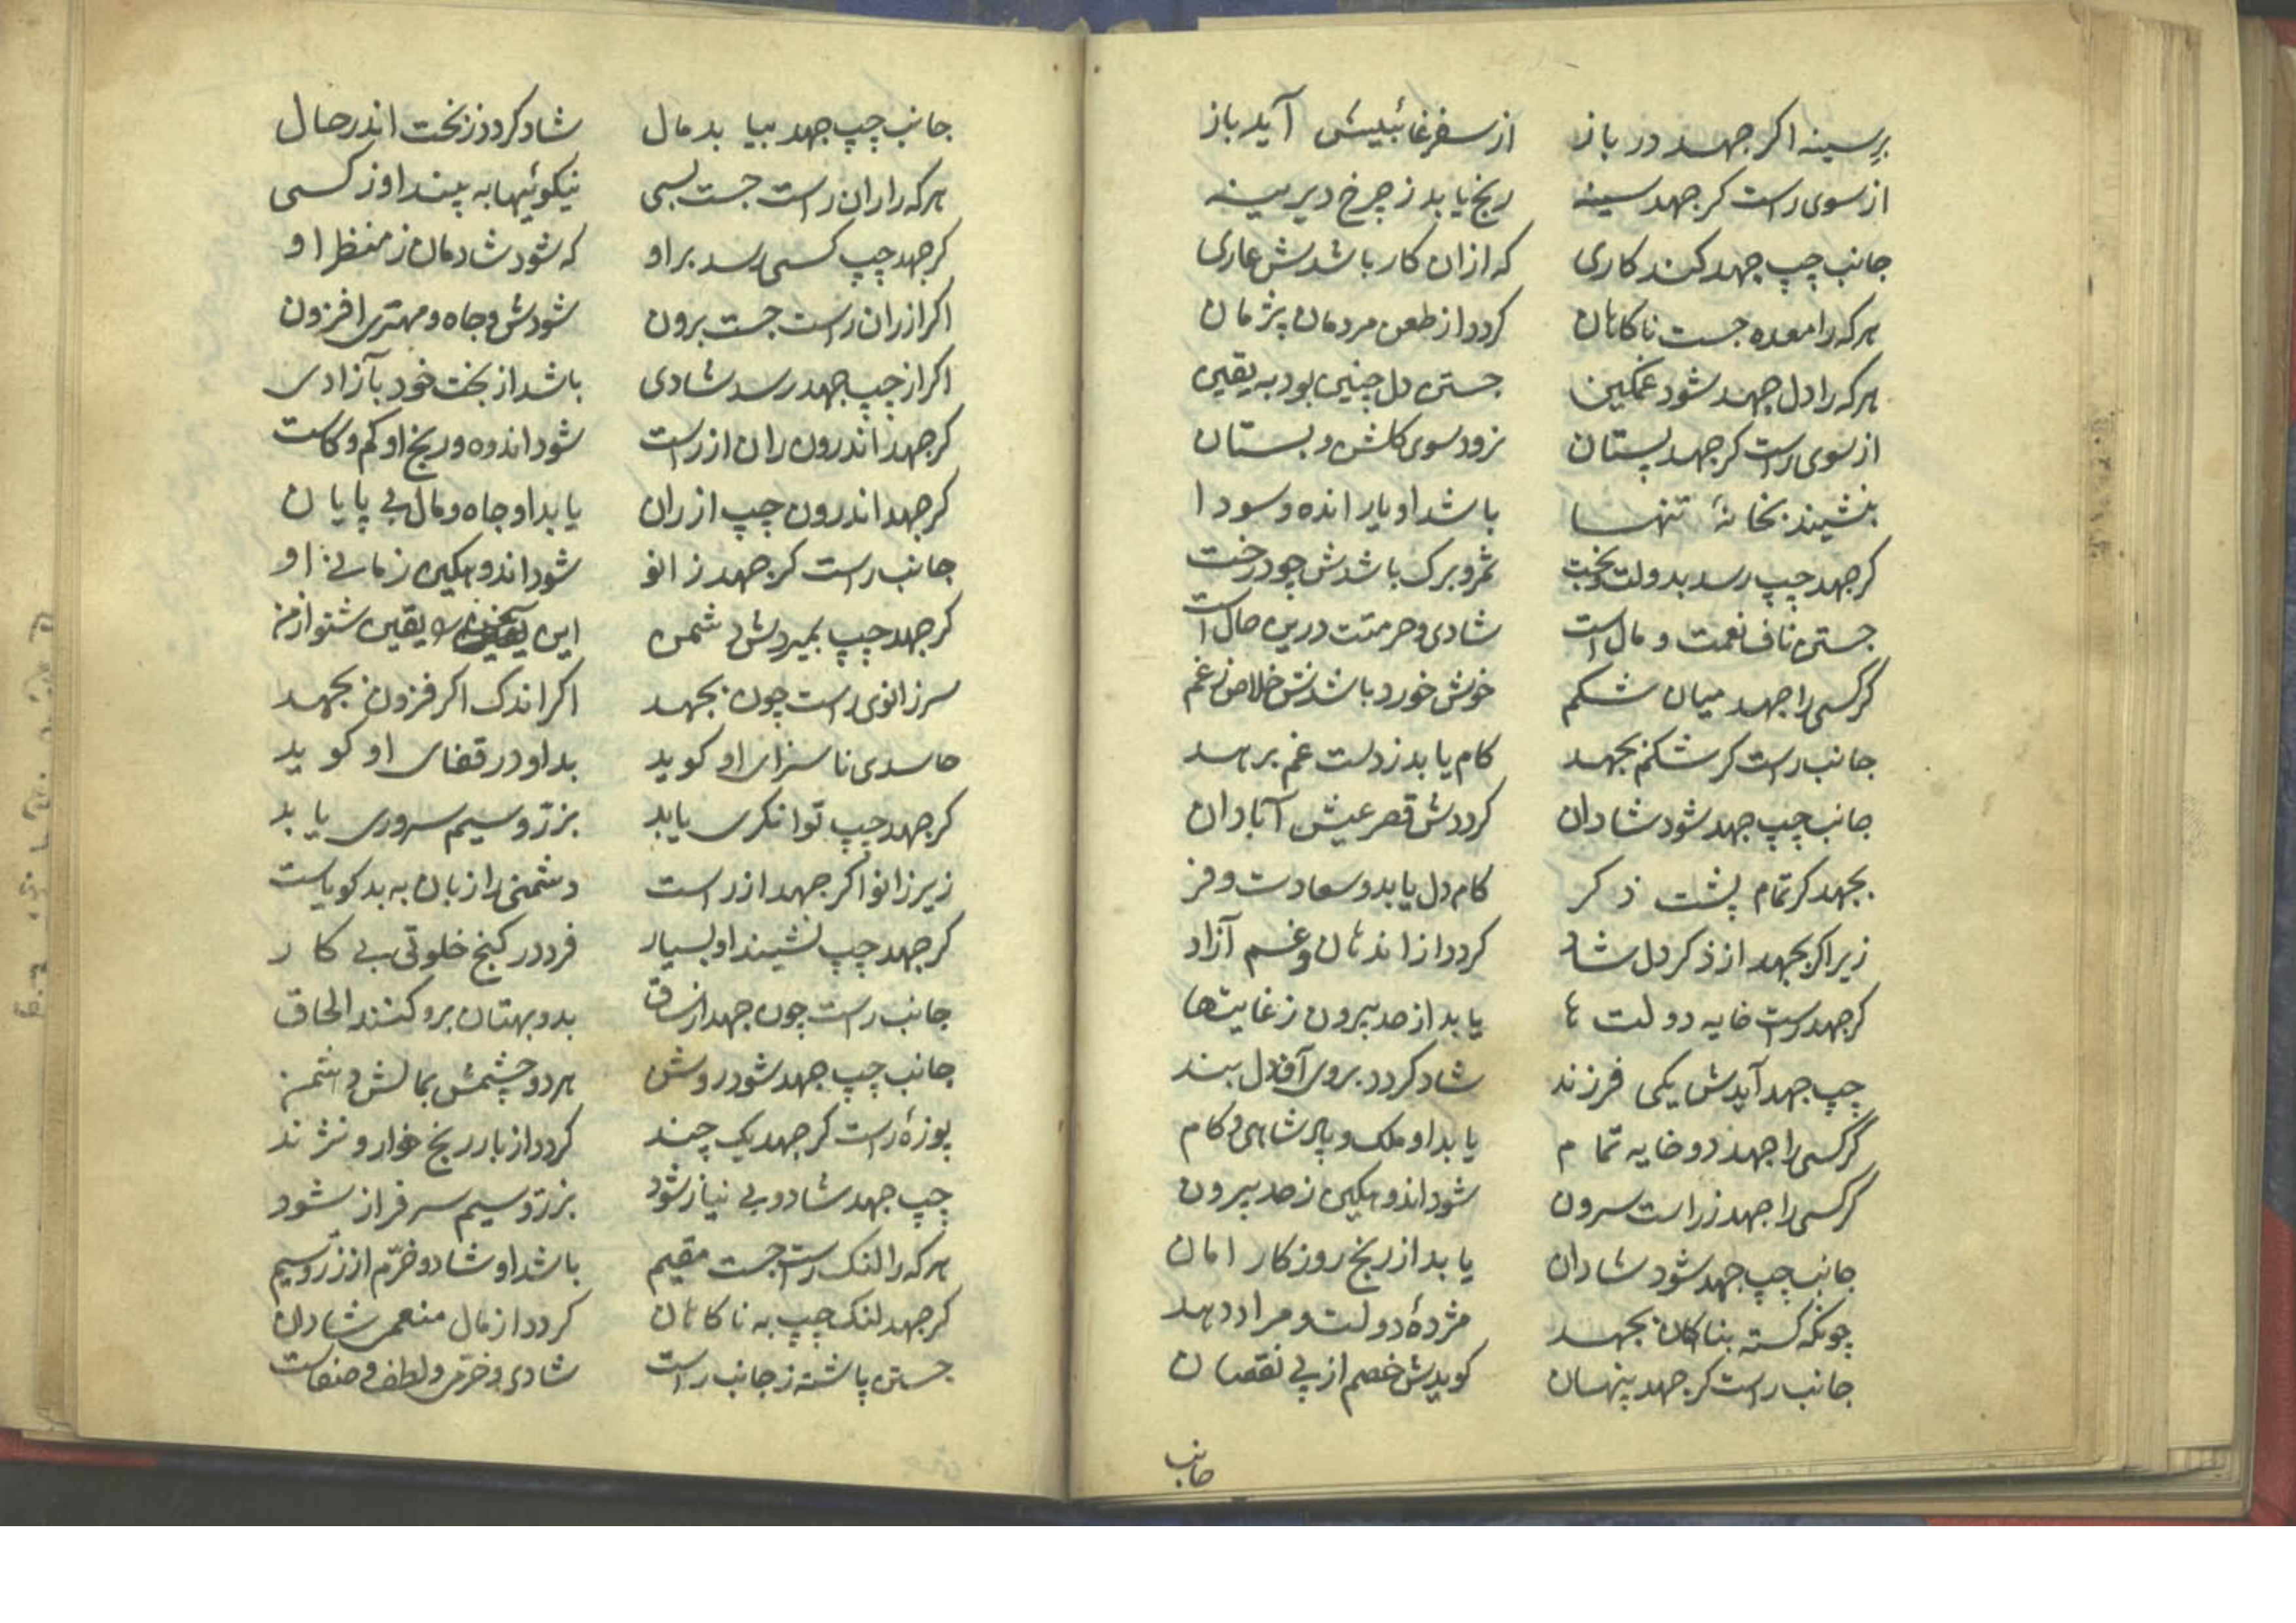 برسینه اکر جهد در باز از سفر غائبیش آید باز
از سوی راست کر جهد سینه رنج یابد ز چرخ دیرینه
جانب چپ جهد کند کاری که ازان کار باشدش عاری
هرکه را معده جست ناکاهان کردد از طعن مردمان پژمان
هرکه را دل جهد شود غمکین جستن دل چنین بود به یقین
از سوی راست کر جهد پستان نرود سوی کلشن و بستان
بنشیند بخانهٔ تنها باشد او یار انده و سودا
کر جهد چپ رسد بدولت و بخت ثمر و برک باشدش چو درخت
جستن ناف نعمت و مال است شادی و حرمتت درین حال است
کر کسی را جهد میان شکم خوش خورد باشدش خلاص زغم
جانب راست کر شکم بجهد کام یابد ز دست غم برهد
جانب چپ جهد شود شادان کرددش قصر عیش آبادان
بجهد کر تمام پشت ذکر کام دل یابد و سعادت و فر
زیر اکر بجهد از ذکر دل شاد کردد از اندهان و غم آزاد
کر جهد راست خایه دولت ها یابد از حد بیرون ز غایت‌ها
چپ جهد آیدش یکی فرزند شاد کردد بروی آن دل بند
کر کسی را جهد دو خایه تمام یابد او ملک و پادشاهی و کام
کر کسی را جهد ز راست سرون شود اندوهکین ز حد بیرون
جانب چپ جهد شود شادان یابد از رنج روزکار امان
چونکه کسته بناکهان بجهد مژدهٔ دولت و مراد دهد
جانب راست کر جهد پنهان کویدش خصم از پی نقصان
جانب
جانب چپ جهد بیابد مال شاد کردد ز بخت اندر حال
هرکه را ران راست جست بسی نیکوئیها به بیند او ز کسی
کر جهد چپ کسی رسد بر او که شود شادمان ز منظر او
اکر از ران راست جست برون شودش جاه و مهتری افزون
اکر از چپ جهد رسد شادی باشد از بخت خود بآزادی
کر جهد اندرون ران از راست شود اندوه و رنج او کم و کاست
کر جهد اندرون چپ از ران یابد او جاه و مال بی پایان
جانب راست کر جهد زانو شود اندوهکین زمانی او
کر جهد چپ بمیردش دشمن این یقین شنو از من
سر زانوی راست چون بجهد اکر اندک اکر فزون بجهد
حاسدی ناسزای او کوید بد او در قفای او کوید
کر جهد چپ توانکری یابد بزر و سیم سروری یابد
زیر زانو اکر جهد از راست دشمنی را زبان به بد کویاست
کر جهد چپ نشیند او بسیار فرد در کنج خلوتی بی کار
جانب راست چون جهد از ساق بد و بهتان برو کنند الحاق
جانب چپ جهد شود روشن هر دو چشمش بمالش دشمن
پوزهٔ راست کر جهد یک چند کردد از بار رنج خوار و نژند
چپ جهد شاد و بی نیاز شود بزر و سیم سرفراز شود
هرکه را لنک راست جست مقیم باشد او شاد و خرّم از زر و سیم
کر جهد لنک چپ به ناکاهان کردد از مال منعمی شادان
جستن پاشنه ز جانب راست شادی و خرّمی و لطف و صفاست